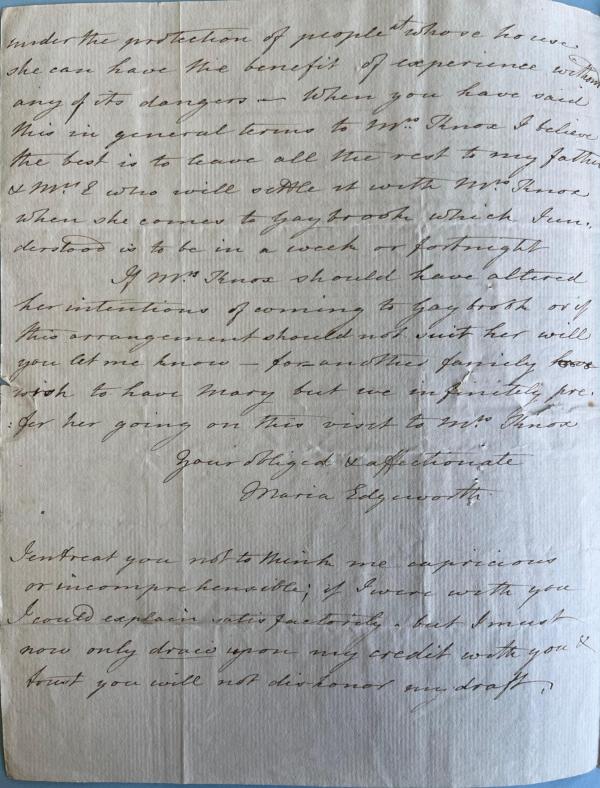 under the protection of people at whose house
she can have the benefit of experience without
any of its dangers – When you have said
this in general terms to Mrs Knox I believe
the best is to leave all the rest to my father
& Mrs E who will settle it with Mrs Knox
when she comes to Gaybrook which I un-
derstood is to be in a week or fortnight
If Mrs Knox should have altered
her intentions of coming to Gaybrook or if
this arrangement should not suit her will
you let me know – for another family
wish to have Mary but we infinitely pre-
:fer her going on this visit to Mrs Knox
Your obliged & affectionate
Maria Edgeworth
I entreat you not to think me capricious
or incomprehensible; if I were with you
I could explain satisfactorily – but I must
now only draw upon my credit with you &
trust you will not dishonor my draft.